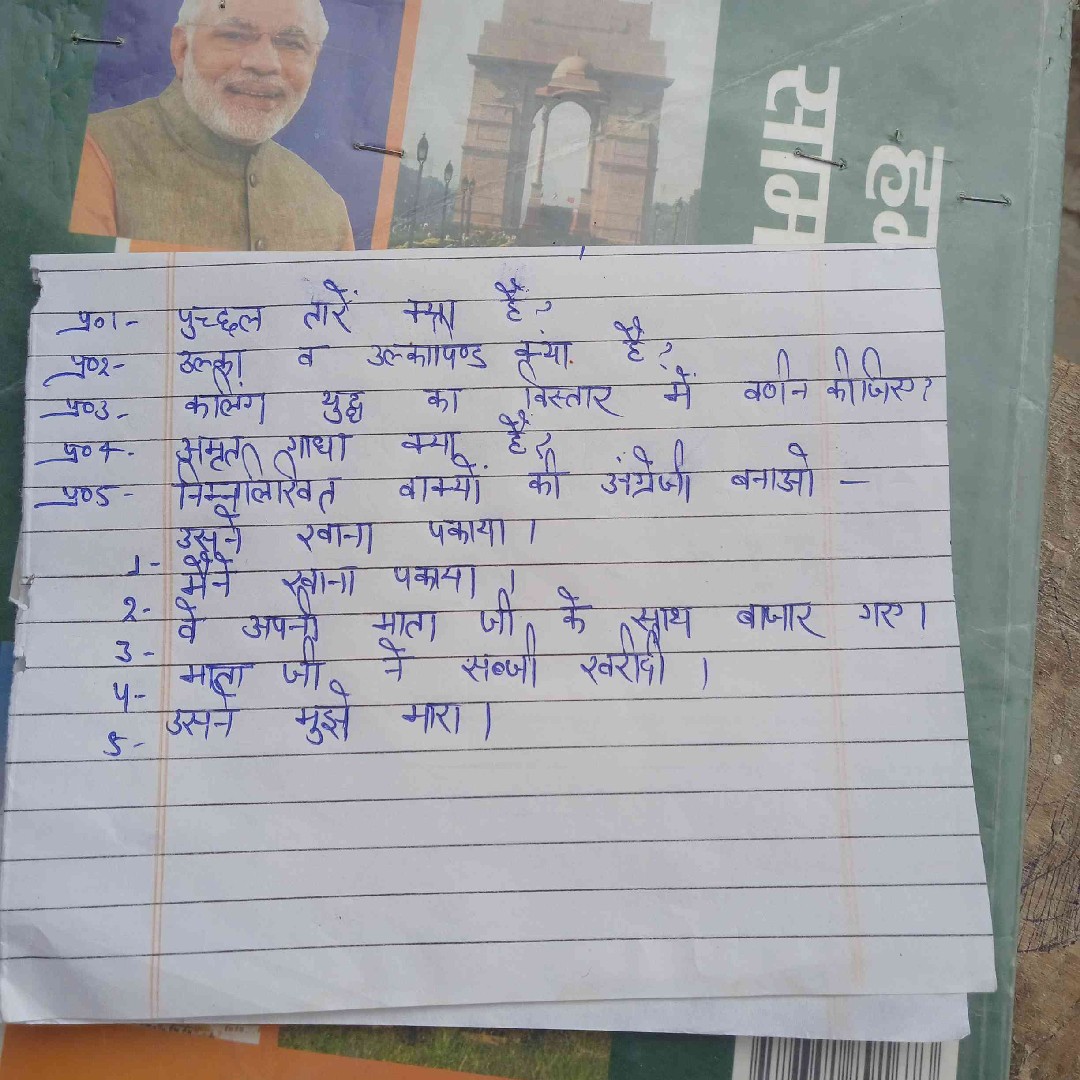 साम
हिन
प्र०1- पुच्छल तारें क्या हैं?
प्र०2- उल्का व उल्कापिण्ड क्या हैं?
प्र०3- कलिंग युद्ध का विस्तार में वर्णन कीजिए?
प्र०4- अमृत गाथा क्या हैं?
प्र०5- निम्नलिखित वाक्यों की अंग्रेजी बनाओ –
1- उसने खाना पकाया ।
2- मैंने खाना पकाया ।
3- वे अपनी माता जी के साथ बाजार गए ।
4- माता जी ने सब्जी खरीदी ।
5- उसने मुझे मारा ।